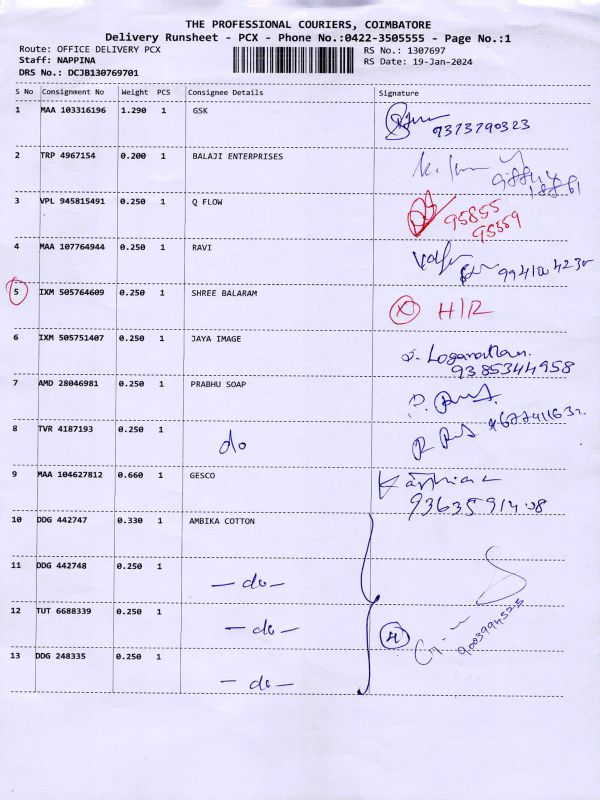 THE PROFESSIONAL COURIERS, COIMBATORE
Delivery Runsheet - PCX - Phone No.:0422-3505555 - Page No.:1
Route: OFFICE DELIVERY PCX
RS No.: 1307697
Staff: NAPPINA
RS Date: 19-Jan-2024
DRS No.: DCJB130769701
S No Consignment No Weight PCS Consignee Details Signature
1 MAA 103316196 1.290 1 GSK
9373790323
2 TRP 4967154 0.200 1 BALAJI ENTERPRISES
3 VPL 945815491 0.250 1 Q FLOW
95855
95559
4 MAA 107764944 0.250 1 RAVI
5 IXM 505764609 0.250 1 SHREE BALARAM
H/R
6 IXM 505751407 0.250 1 JAYA IMAGE
Loganathan.
9385344958
7 AMD 28046981 0.250 1 PRABHU SOAP
8 TVR 4187193 0.250 1 do
9 MAA 104627812 0.660 1 GESCO
9363591408
10 DDG 442747 0.330 1 AMBIKA COTTON
11 DDG 442748 0.250 1 — do —
12 TUT 6688339 0.250 1 — do —
4
13 DDG 248335 0.250 1 — do —